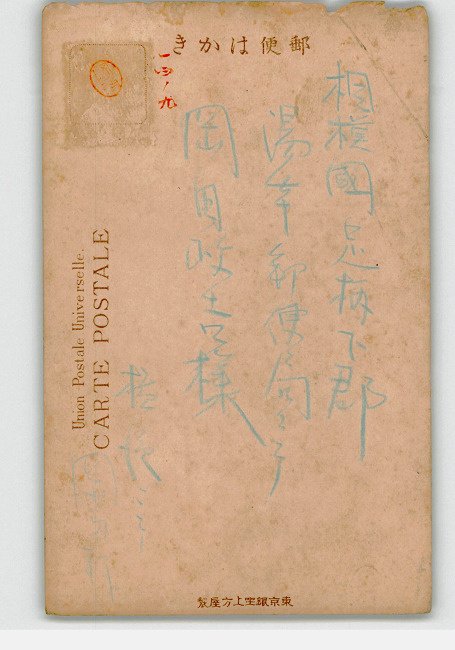 郵便はかき
一四ノ九
相模國足柄下郡
湯本郵便局ニテ
岡田政吉様
ニテ
Union Postale Universelle.
CARTE POSTALE
東京銀座上方屋製